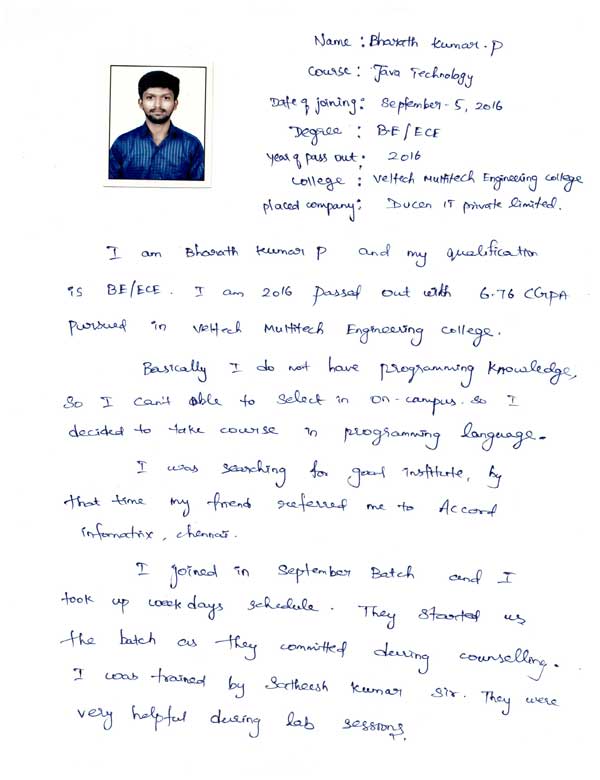 Name : Bharath Kumar.P
Course : Java Technology
Date of joining : September - 5, 2016
Degree : BE/ECE
Year of pass out : 2016
College : Veltech Multitech Engineering college
placed company : Ducen IT private limited.
I am Bharath Kumar P and my qualification
is BE/ECE. I am 2016 passed out with 6.76 CGPA
pursued in Veltech Multitech Engineering college.
Basically I do not have programming knowledge,
So I can't able to select in on-campus. so I
decided to take course in programming language.
I was searching for good institute, by
that time my friend referred me to Accord
infomatrix, chennai.
I joined in September Batch and I
took up weekdays schedule. They started us
the batch as they committed during counselling.
I was trained by Satheesh Kumar Sir. They were
very helpful during lab sessions.